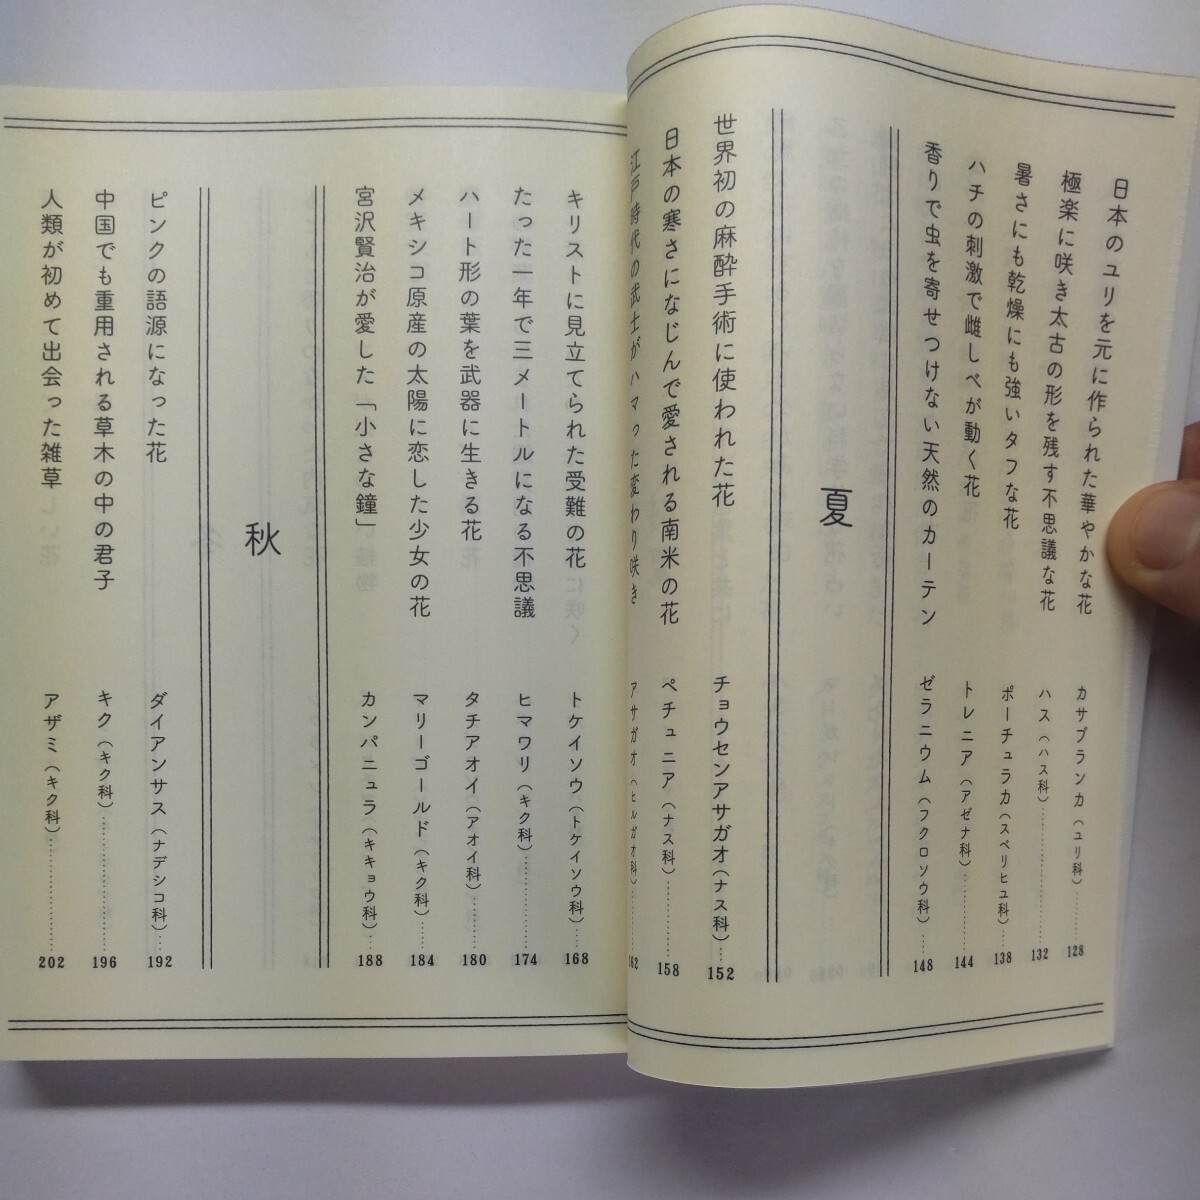 日本のユリを元に作られた華やかな花 カサブランカ（ユリ科）……… 128
極楽に咲き太古の形を残す不思議な花 ハス（ハス科）……… 132
暑さにも乾燥にも強いタフな花 ポーチュラカ（スベリヒユ科）… 138
ハチの刺激で雌しべが動く花 トレニア（アゼナ科）……… 144
香りで虫を寄せつけない天然のカーテン ゼラニウム（フクロソウ科）… 148
夏
世界初の麻酔手術に使われた花 チョウセンアサガオ（ナス科）… 152
日本の寒さになじんで愛される南米の花 ペチュニア（ナス科）……… 158
江戸時代の武士がハマった変わり咲き アサガオ（ヒルガオ科）……… 162
キリストに見立てられた受難の花 トケイソウ（トケイソウ科）… 168
たった一年で三メートルになる不思議 ヒマワリ（キク科）……… 174
ハート形の葉を武器に生きる花 タチアオイ（アオイ科）……… 180
メキシコ原産の太陽に恋した少女の花 マリーゴールド（キク科）… 184
宮沢賢治が愛した「小さな鐘」 カンパニュラ（キキョウ科）… 188
秋
ピンクの語源になった花 ダイアンサス（ナデシコ科）… 192
中国でも重用される草木の中の君子 キク（キク科）……… 196
人類が初めて出会った雑草 アザミ（キク科）……… 202